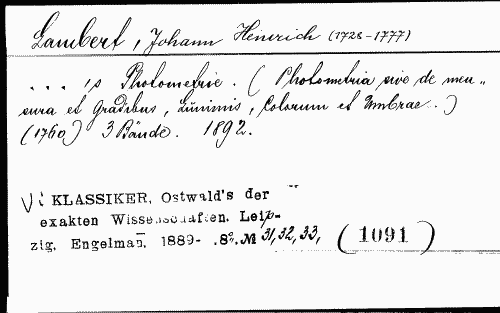 Lambert, Johann Heinrich (1728-1777)
. . . 's Photometrie. (Photometria sive de men„
sura et gradibus, luminis, colorum et umbrae.)
(1760) 3 Bände. 1892.
KLASSIKER, Ostwald's der
exakten Wissenschaften. Leip-
zig, Engelman̅, 1889- .8º. № 31, 32, 33, (1091)